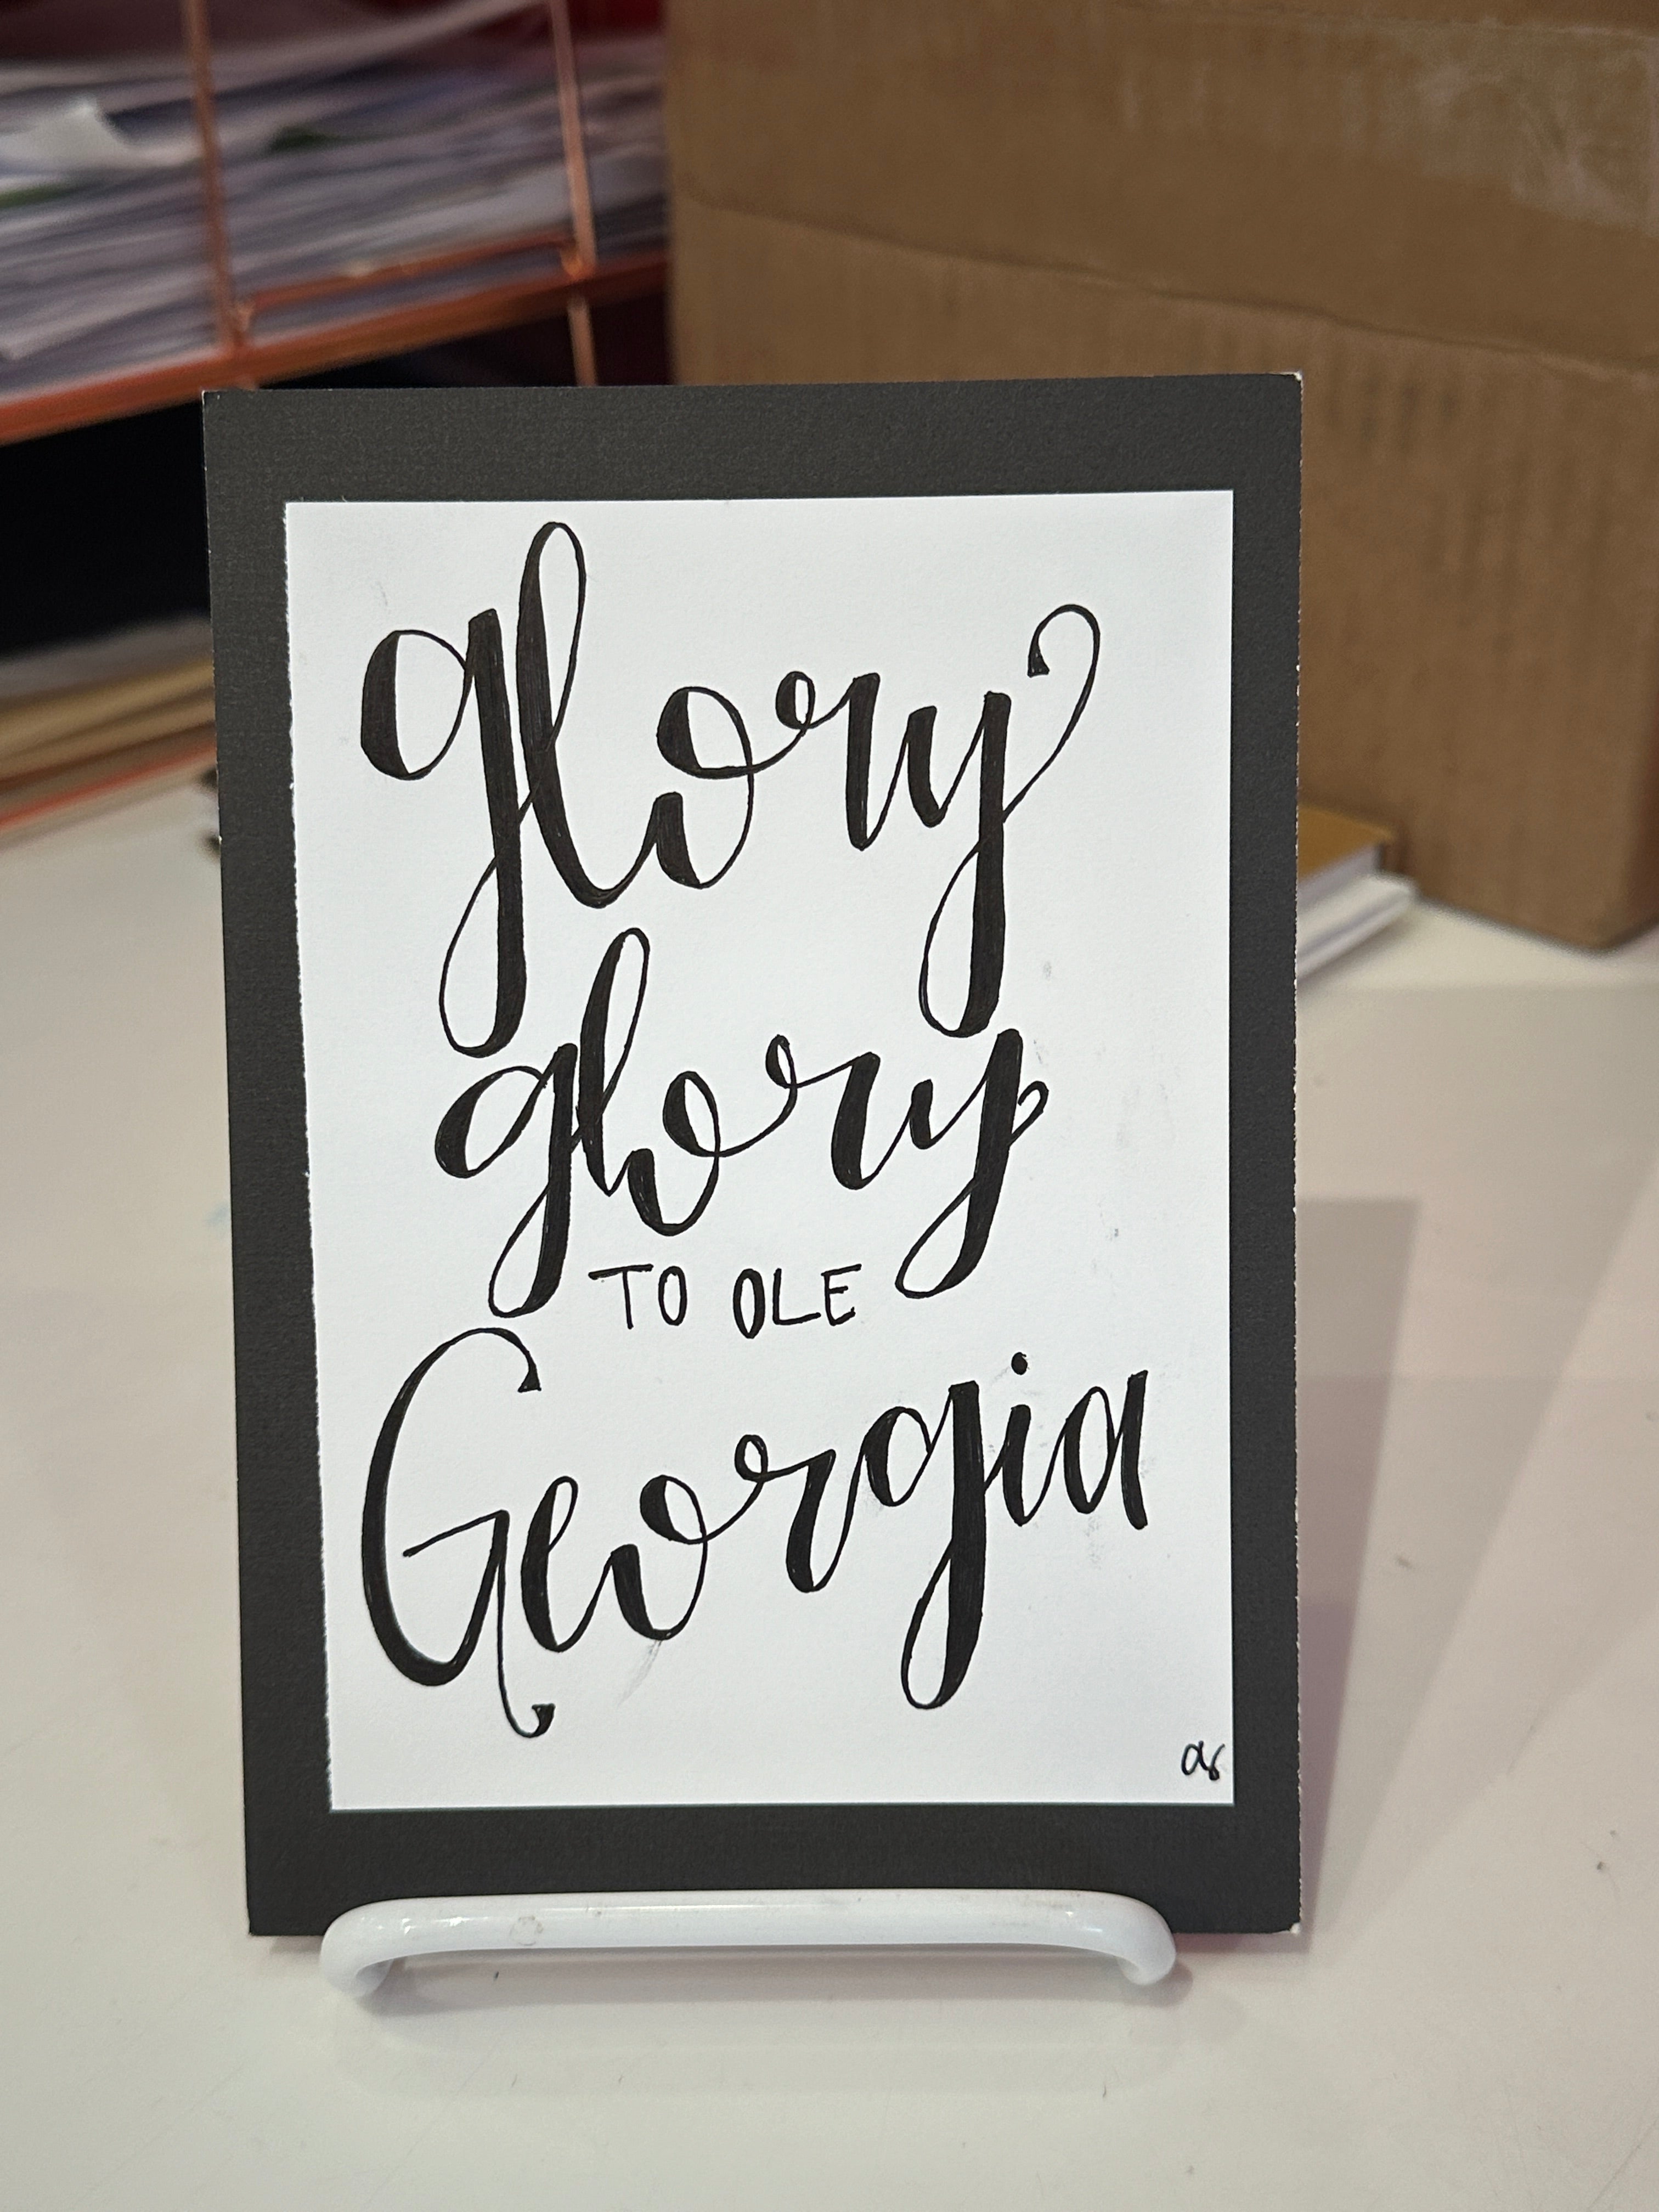 glory
glory
TO OLE
Georgia
as